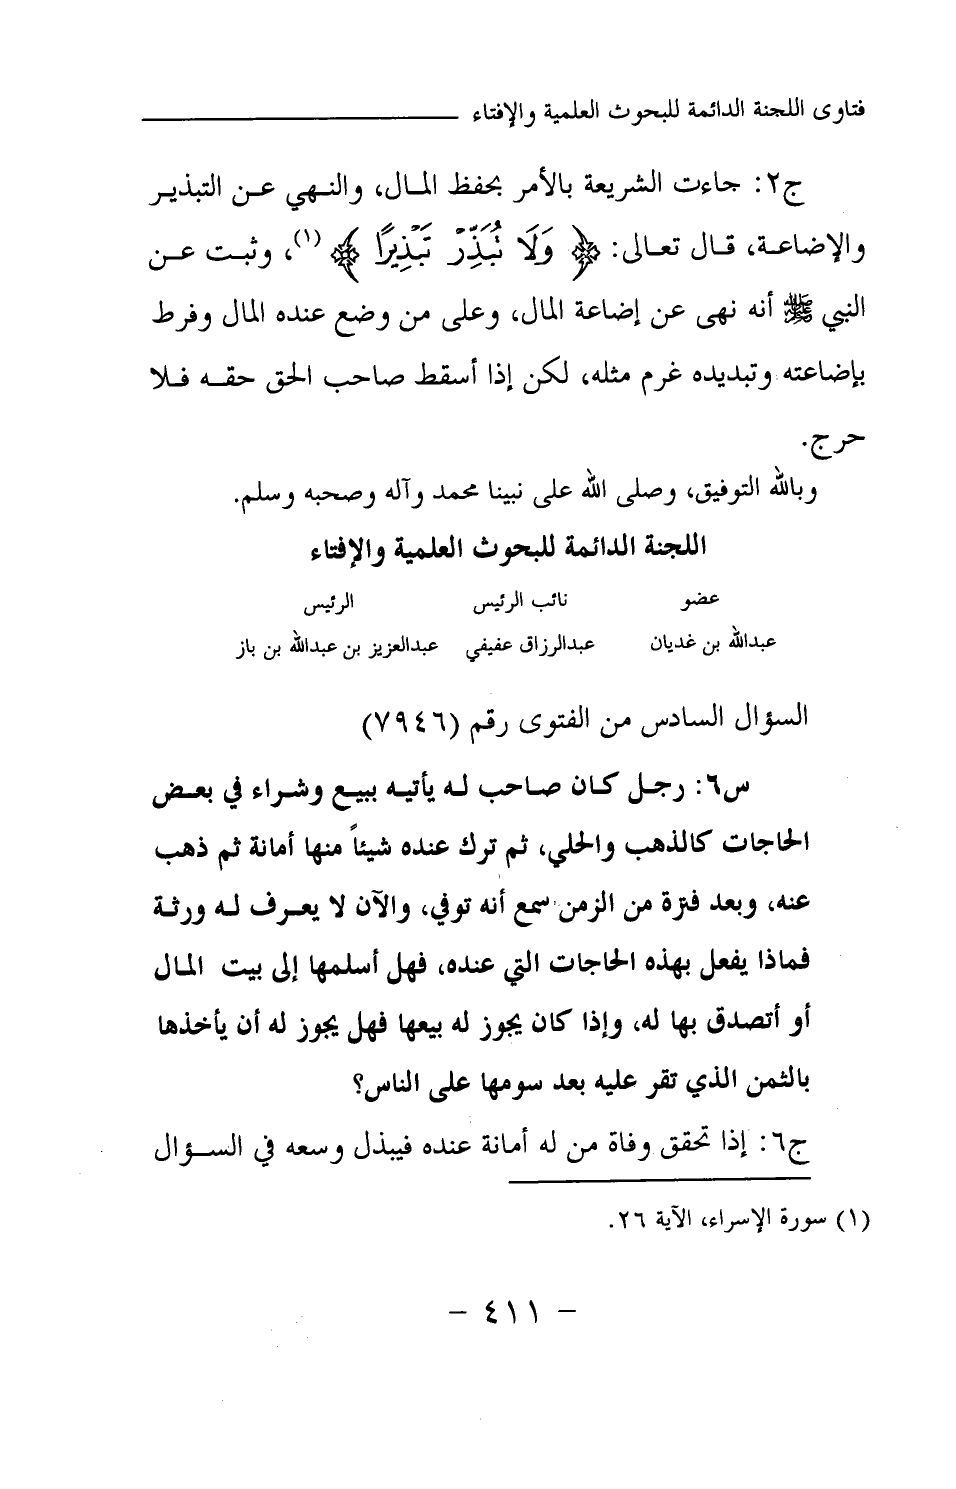 فتاوى اللجنة الدائمة للبحوث العلمية والإفتاء
ج٢: جاءت الشريعة بالأمر بحفظ المال، والنهي عن التبذير
والإضاعة، قال تعالى: ﴿ وَلَا تُبَذِّرْ تَبْذِيرًا ﴾ (١)، وثبت عن
النبي ﷺ أنه نهى عن إضاعة المال، وعلى من وضع عنده المال وفرط
بإضاعته وتبديده غرم مثله، لكن إذا أسقط صاحب الحق حقه فلا
حرج.
وبالله التوفيق، وصلى الله على نبينا محمد وآله وصحبه وسلم.
اللجنة الدائمة للبحوث العلمية والإفتاء
عضو نائب الرئيس الرئيس
عبدالله بن غديان عبدالرزاق عفيفي عبدالعزيز بن عبدالله بن باز
السؤال السادس من الفتوى رقم (٧٩٤٦)
س٦: رجل كان صاحب له يأتيه ببيع وشراء في بعض
الحاجات كالذهب والحلي، ثم ترك عنده شيئاً منها أمانة ثم ذهب
عنه، وبعد فترة من الزمن سمع أنه توفي، والآن لا يعرف له ورثة
فماذا يفعل بهذه الحاجات التي عنده، فهل أسلمها إلى بيت المال
أو أتصدق بها له، وإذا كان يجوز له بيعها فهل يجوز له أن يأخذها
بالثمن الذي تقر عليه بعد سومها على الناس؟
ج٦: إذا تحقق وفاة من له أمانة عنده فيبذل وسعه في السؤال
(١) سورة الإسراء، الآية ٢٦.
- ٤١١ -